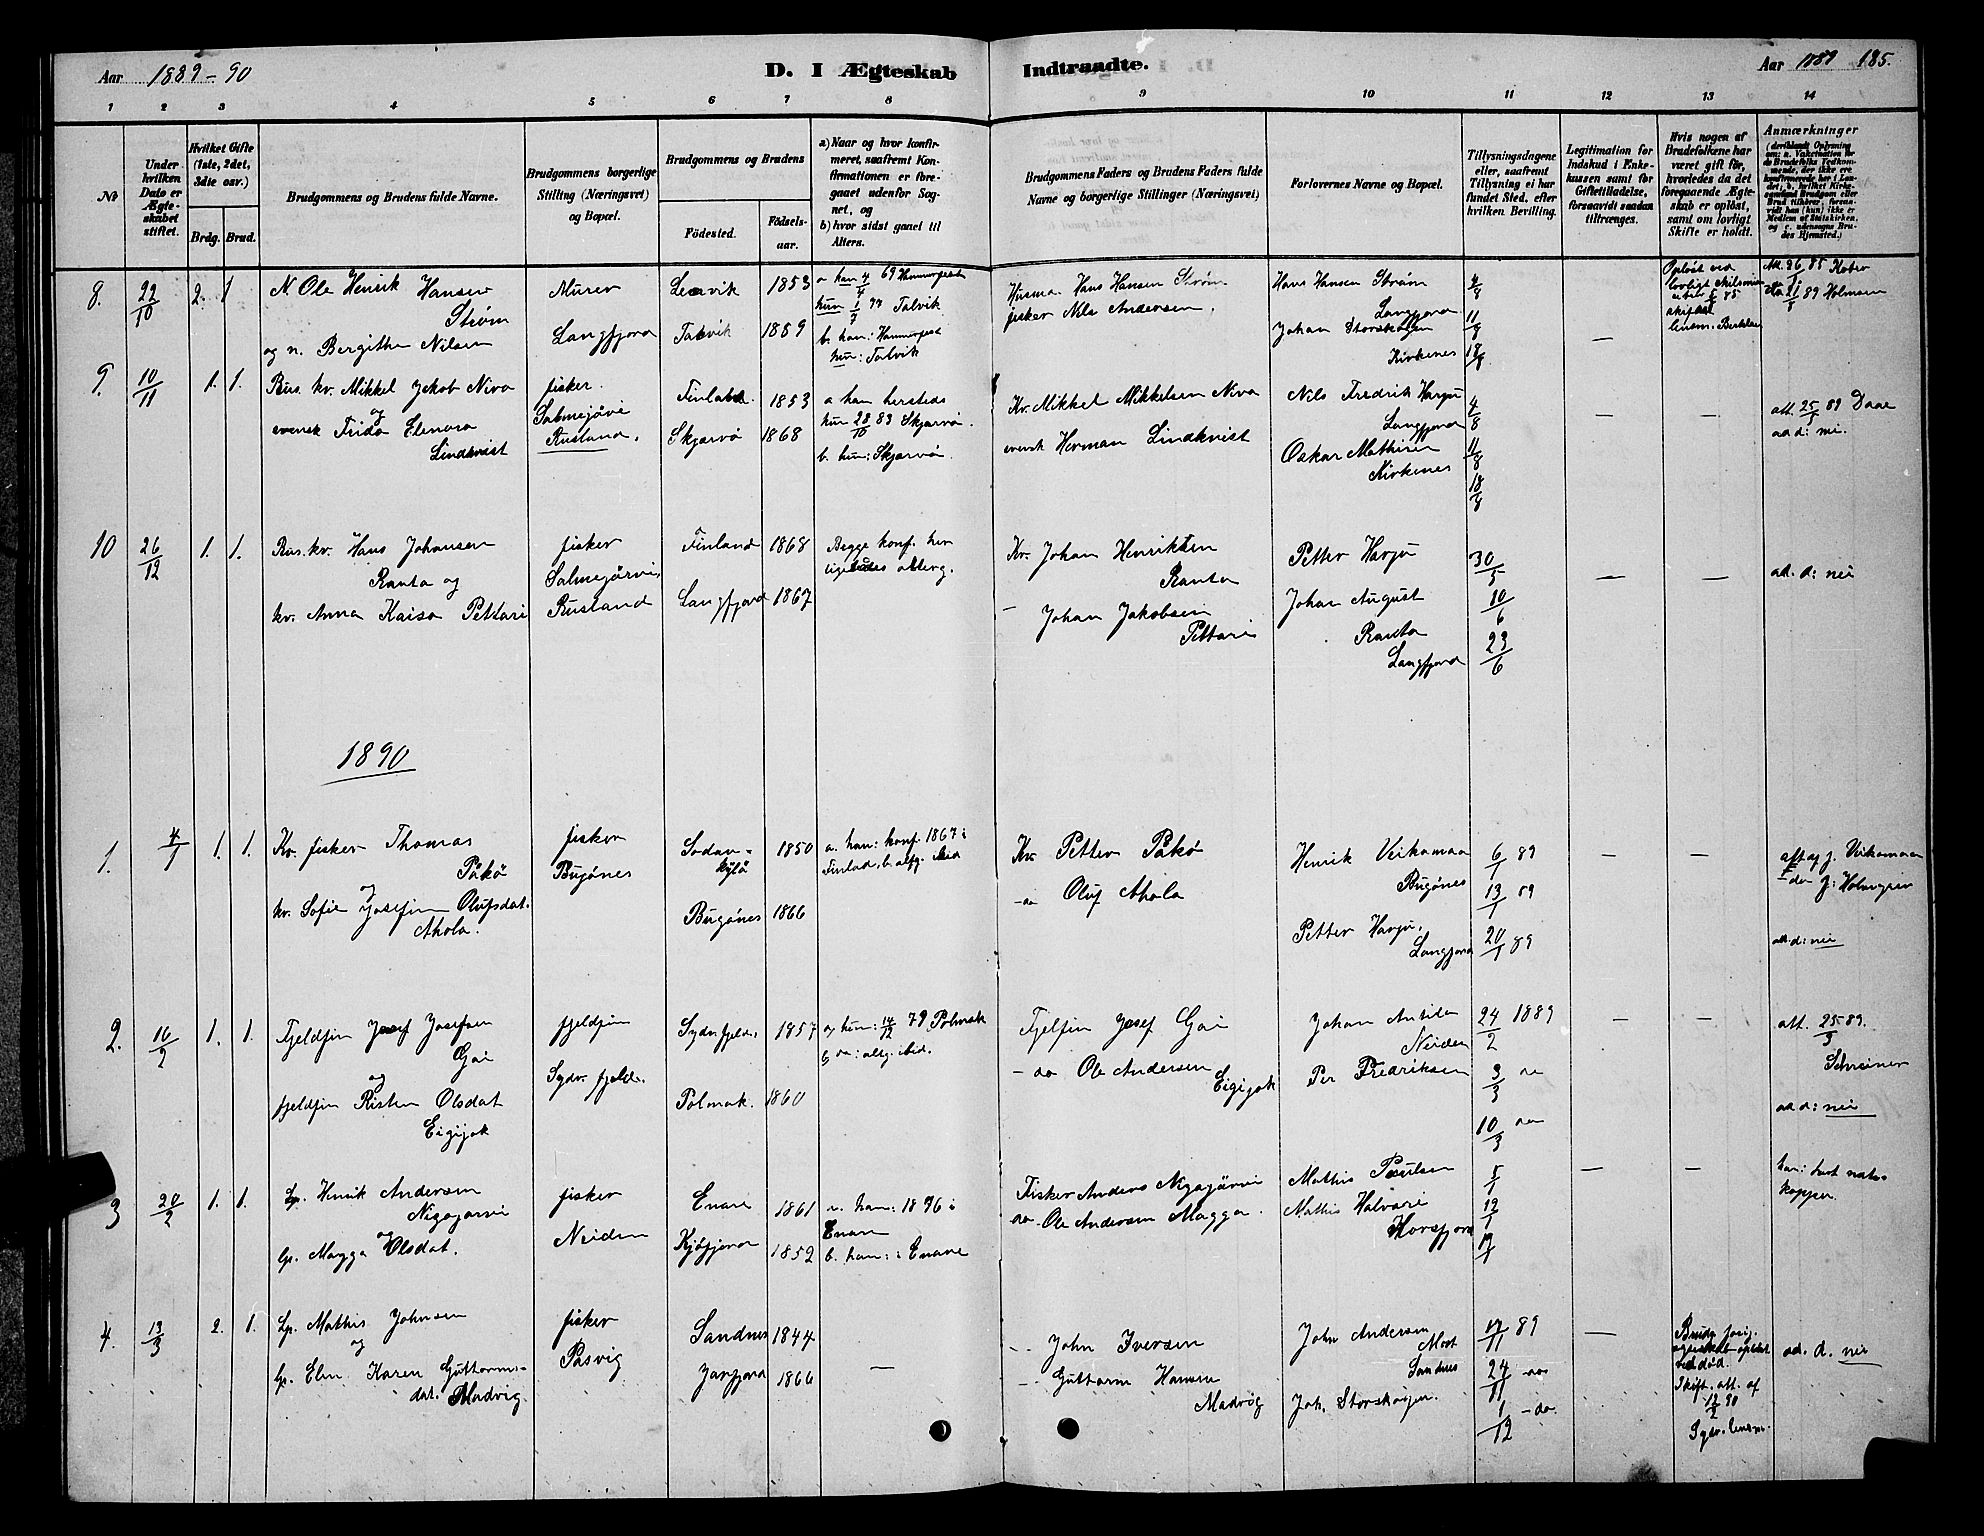 Aar 1889-90
D. I Ægteskab Indtraadte.
Aar 1889 185.
1 2 3 4 5 6 7 8 9 10 11 12 13 14
№
Under hvilken Dato er Ægteskabet stiftet.
Hvilket Gifte (1ste, 2det, 3die osv.)
Brdg. Brud.
Brudgommens og Brudens fulde Navne.
Brudgommens borgerlige Stilling (Næringsvei) og Bopæl.
Brudgommens og Brudens
Fødested.
Fødselsaar.
a) Naar og hvor konfirmeret, saafremt Konfirmationen er foregaaet udenfor Sognet, og
b) hvor sidst gaaet til Alters.
Brudgommens Faders og Brudens Faders fulde Navne og borgerlige Stillinger (Næringsvei)
Forlovernes Navne og Bopæl.
Tillysningsdagene eller, saafremt Tillysning ei har fundet Sted, efter hvilken Bevilling.
Legitimation for Indskud i Enkekassen samt for Giftetilladelse, forsaavidt saadan tiltrænges.
Hvis nogen af Brudefolkene har været gift før, hvorledes da det foregaaende Ægteskab er opløst, samt om lovligt Skifte er holdt.
Anmærkninger
8. 22/10 2. 1
N. Ole Henrik Hansen
Strøm
og n. Bergithe Nilsen
Murer
Langfjord
Leavik 1853
Talvik 1859
a han 4/4 69 Hammerfest
hun 1/7 77 Talvik
b. han: Hammerfest
hun: Talvik
Husma. Hans Hansen Strøm
fisker Nils Andersen.
Hans Hansen Strøm
Langfjord
Johan Storskogen
Kirkenes
4/8
11/8
18/8
—
Opløst ved
lovligt skilsmisse
9. 10/11 1. 1.
Rus. kv. Mikkel Jakob Niva
og
svensk Frida Elenora
Lindkvist
fisker.
Salmejävi
Rusland.
Finland. 1853
Skjærvø 1868
a han hersteds
hun 28/10 83 Skjærvø.
b. hun: Skjærvø.
Kv. Mikkel Mikkelsen Niva
svensk Herman Lindkvist
Nils Fredrik Harju
Langfjord
Oskar Mathisen
Kirkenes
4/8
11/8
18/8
— —
att. 25/5 89 Daae
ad d: nei.
10 26/12 1. 1.
Rus. kv. Hans Johansen
Ranta og
kv. Anna Kaisa Pettari
fisker
Salmejärvi,
Rusland
Finland 1868
Langfjord 1867
Begge konf. her
ligeledes alterg.
Kv. Johan Henriksen
Ranta
— Johan Jakobsen
Pettari
Petter Harju
Johan August
Ranta
Langfjord
30/5
10/6
23/6
— —
ad. d: nei
1890
1. 4/1 1. 1.
Kv. fisker Thomas
Påkø
og
kv. Sofie Josefine Olufsdat.
Ahola.
fisker
Bugønes
Sodankylä 1850
Bugønes 1866
a. han: konf. 1867 i
Finland, b. altg. ibid
Kv. Petter Påkø
-do Oluf Ahola
Henrik Veikamaa
Bugønes
Petter Harju,
Langfjord
6/1 89
13/1 89
20/1 89
— —
att af J. Veikamaa
do J: Holmgren
ad. d: nei
2. 16/2 1. 1.
Fjeldfin Josef Josefsen
Gai
og
fjeldfin Risten Olsdat
Eigijok
fjeldfin
Sydv. fjeld.
Sydv. fjeld. 1857
Polmak. 1860
a hun: 14/12 79 Polmak
b do: altg. ibid.
Fjelfin Josef Gai
- do Ole Andersen
Eigijok
Johan Antila
Neiden
Per Fredriksen
24/2 1889
3/3 do
10/3 do
— —
att. 25/3 89.
Schreiner
ad d: nei
3 20/2 1. 1.
Lp. Henrik Andersen
Nigajarvi
og
lp. Magga Olsdat.
fisker
Neiden
Enare 1861
Kjøfjord 1859
a. han: 1876 i
Enare
b. han: i Enare
Fisker Anders Nigajärvi
do. Ole Andersen Magga.
Mathis Paulsen
Mathis Halvari
Korsfjord
5/1
12/1
19/1
— —
han: havt nat.
kopper.
4. 13/3 2. 1.
Lp. Mathis Johnsen
og
lp. Elen Karen Guttormsdat.
Madvig.
fisker
Pasvig
Sandnes 1844
Jarfjord 1866
—
-- John Iversen
-- Guttorm Hansen
Madvig
John Andersen
Sandnes
Joh. Storskogen.
17/11 89
24/11 do
1/12 - do.
—
Brudg. forrig.
ægteskab opløst
ved død.
Skift. att. af
12/2 90
Sydv. lensm.
ad. d. nei